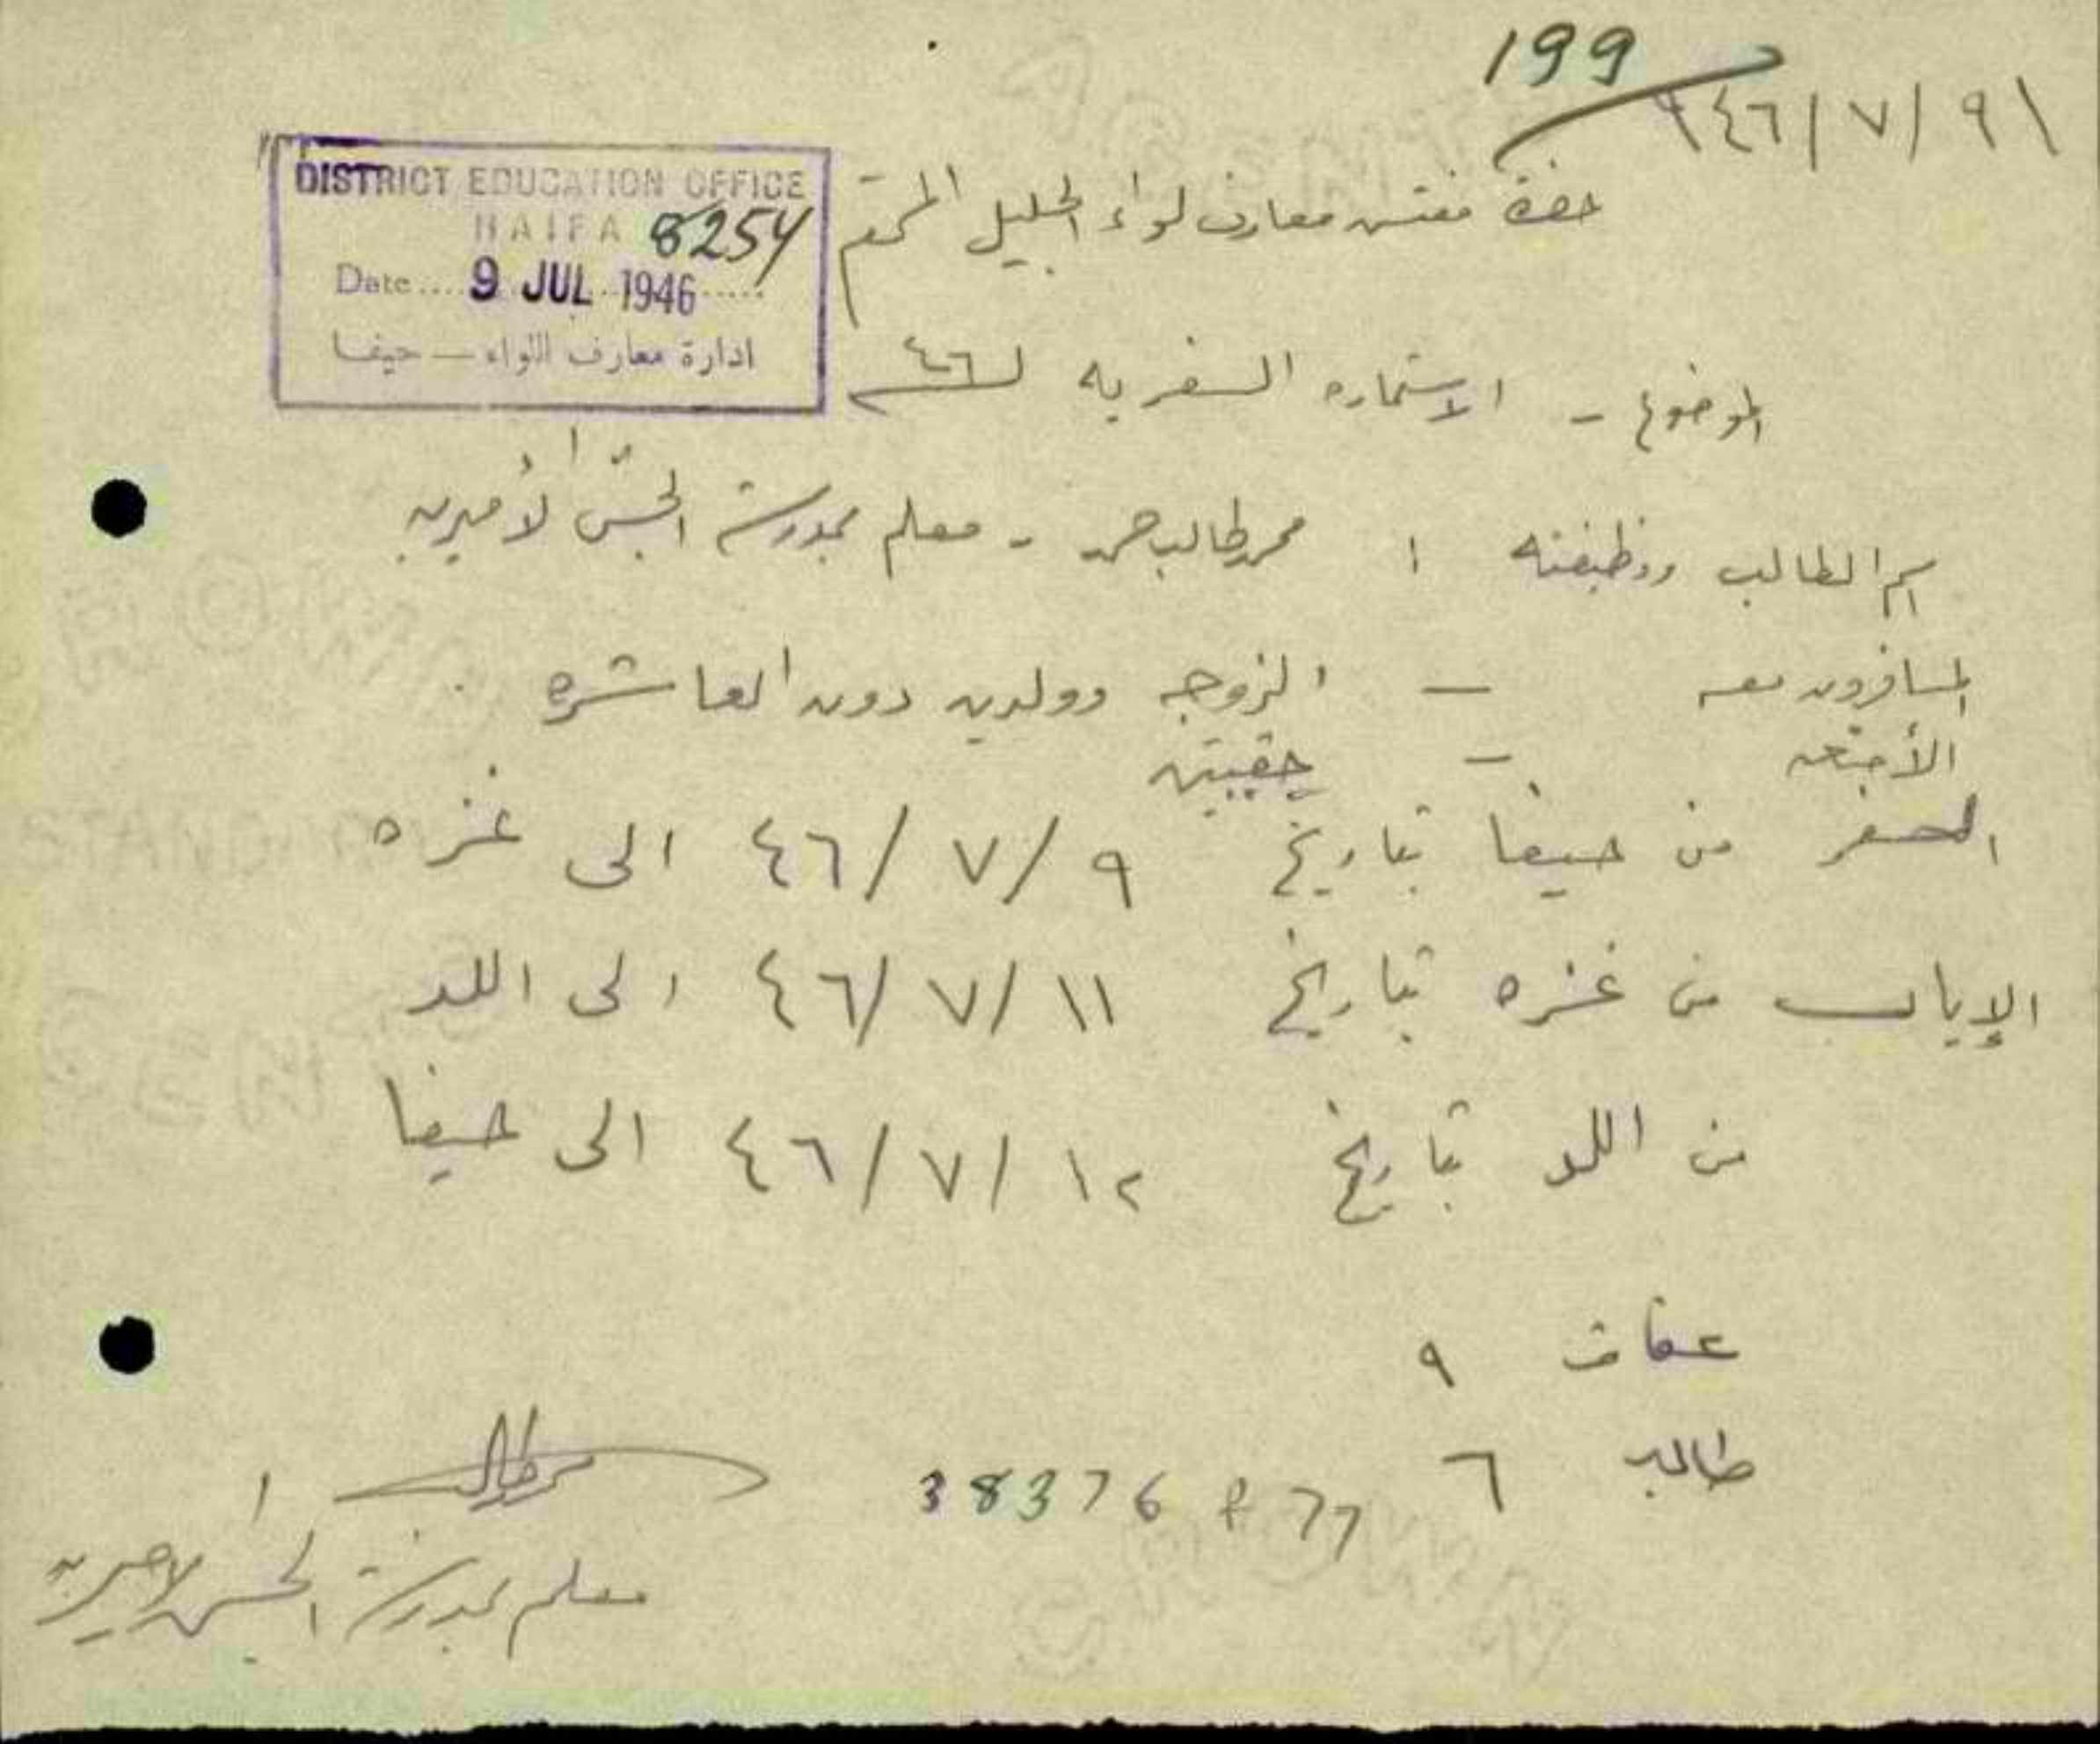 199
٩٤٦/٧/٩١
DISTRICT EDUCATION OFFICE
HAIFA 8254
Date.... 9 JUL 1946 .....
ادارة معارف اللواء — حيفا
حضرة مفتش معارف لواء الجليل المحترم
الموضوع - الاستماره السفريه لـ ٤٦
اسم الطالب ووظيفته : محمد طالب حمد - معلم بمدرسة الأميريه
المسافرون معه - الزوجه وولدين دون العاشره
الأمتعه - حقيبتين
السفر من حيفا بتاريخ ٤٦/٧/٩ الى غزه
الإياب من غزه بتاريخ ٤٦/٧/١١ الى اللد
من اللد بتاريخ ٤٦/٧/١٢ الى حيفا
عفاف ٩
طالب ٦
38376 P 77
معلم بمدرسة الأميريه